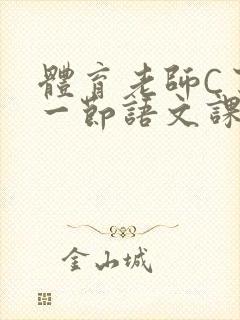 體育老師C了
一節語文課
金山城